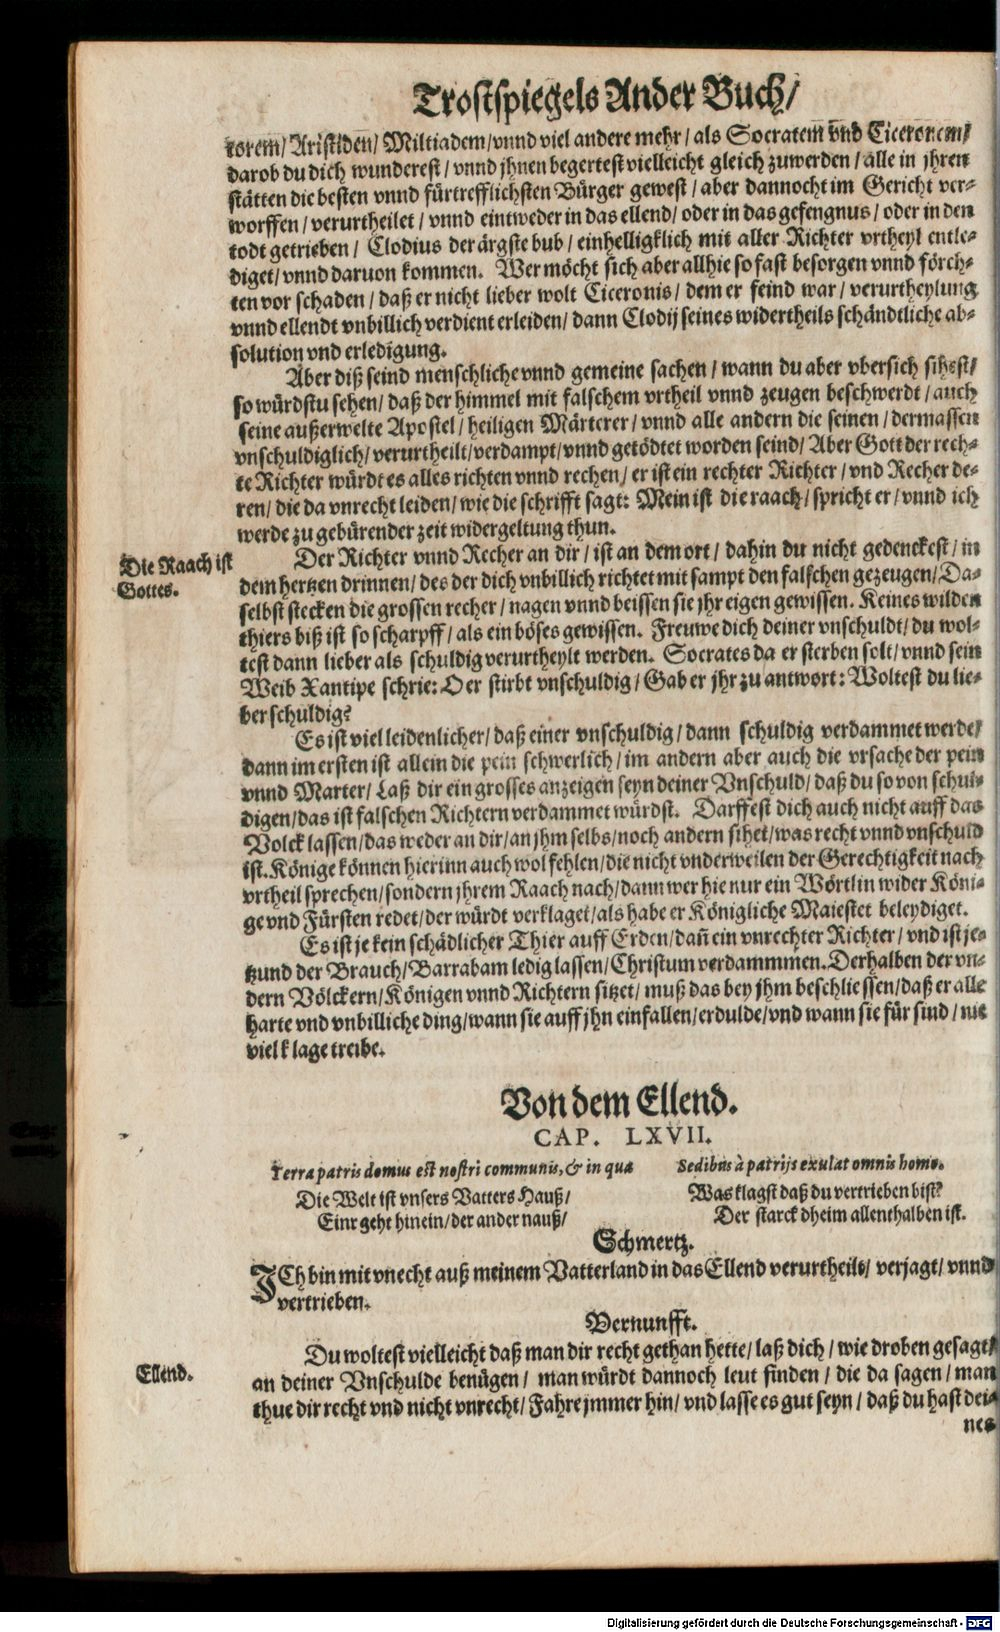 Trostspiegels Ander Buch/
torem/ Aristiden/ Miltiadem/ vnnd viel andere mehr/ als Socratem vnd Ciceronem/
darob du dich wunderest/ vnnd jhnen begertest vielleicht gleich zuwerden/ alle in jhren
stätten die besten vnnd fürtrefflichsten Bürger gewest/ aber dannocht im Gericht ver-
worffen/ verurtheilet/ vnnd eintweder in das ellend/ oder in das gefengnus/ oder in den
todt getrieben/ Clodius der ärgste bub/ einhelligklich mit aller Richter vrtheyl entle-
diget/ vnnd daruon kommen. Wer möcht sich aber allhie so fast besorgen vnnd förch-
ten vor schaden/ daß er nicht lieber wolt Ciceronis/ dem er feind war/ verurtheylung
vnnd ellendt vnbillich verdient erleiden/ dann Clodij seines widertheils schändtliche ab-
solution vnd erledigung.
Aber diß seind menschliche vnnd gemeine sachen/ wann du aber vbersich sihest/
so würdstu sehen/ daß der himmel mit falschem vrtheil vnnd zeugen beschwerdt/ auch
seine außerwelte Apostel/ heiligen Märterer/ vnnd alle andern die seinen/ dermassen
vnschuldiglich/ verurtheilt/ verdampt/ vnnd getödtet worden seind/ Aber Gott der rech-
te Richter würdt es alles richten vnnd rechen/ er ist ein rechter Richter/ vnd Recher de-
ren/ die da vnrecht leiden/ wie die schrifft sagt: Mein ist die raach/ spricht er/ vnnd ich
werde zu gebürender zeit widergeltung thun.
Die Raach ist
Gottes.
Der Richter vnnd Recher an dir/ ist an dem ort/ dahin du nicht gedenckest/ in
dem hertzen drinnen/ des der dich vnbillich richtet mit sampt den falschen gezeugen/ Da-
selbst stecken die grossen recher/ nagen vnnd beissen sie jhr eigen gewissen. Keines wilden
thiers biß ist so scharpff/ als ein böses gewissen. Freuwe dich deiner vnschuldt/ du wol-
test dann lieber als schuldig verurtheylt werden. Socrates da er sterben solt/ vnnd sein
Weib Xantipe schrie: O er stirbt vnschuldig/ Gab er jhr zu antwort: Woltest du lie-
ber schuldig?
Es ist viel leidenlicher/ daß einer vnschuldig/ dann schuldig verdammet werde/
dann im ersten ist allein die pein schwerlich/ im andern aber auch die vrsache der pein
vnnd Marter/ Laß dir ein grosses anzeigen seyn deiner Vnschuld/ daß du so von schul-
digen/ das ist falschen Richtern verdammet würdst. Darffest dich auch nicht auff das
Volck lassen/ das weder an dir/ an jhm selbs/ noch andern sihet/ was recht vnnd vnschuld
ist. Könige können hierinn auch wol fehlen/ die nicht vnderweilen der Gerechtigkeit nach
vrtheil sprechen/ sondern jhrem Raach nach/ dann wer hie nur ein Wörtlin wider Köni-
ge vnd Fürsten redet/ der würdt verklaget/ als habe er Königliche Maiestet beleydiget.
Es ist je kein schädlicher Thier auff Erden/ dañ ein vnrechter Richter/ vnd ist je-
tzund der Brauch/ Barrabam ledig lassen/ Christum verdammmen. Derhalben der vn-
dern Völckern/ Königen vnnd Richtern sitzet/ muß das bey jhm beschliessen/ daß er alle
harte vnd vnbilliche ding/ wann sie auff jhn einfallen/ erdulde/ vnd wann sie für sind/ nit
viel klage treibe.
Von dem Ellend.
CAP. LXVII.
Terra patris domus est nostri communis, & in qua
Sedibus à patrijs exulat omnis homo.
Die Welt ist vnsers Vatters Hauß/
Einr geht hinein/ der ander nauß/
Was klagst daß du vertrieben bist?
Der starck dheim allenthalben ist.
Schmertz.
ICh bin mit vnecht auß meinem Vatterland in das Ellend verurtheilt/ verjagt/ vnnd
vertrieben.
Vernunfft.
Ellend.
Du woltest vielleicht daß man dir recht gethan hette/ laß dich/ wie droben gesagt/
an deiner Vnschulde benügen/ man würdt dannoch leut finden/ die da sagen/ man
thue dir recht vnd nicht vnrecht/ Fahre jmmer hin/ vnd lasse es gut seyn/ daß du hast dei-
nes
Digitalisierung gefördert durch die Deutsche Forschungsgemeinschaft - DFG